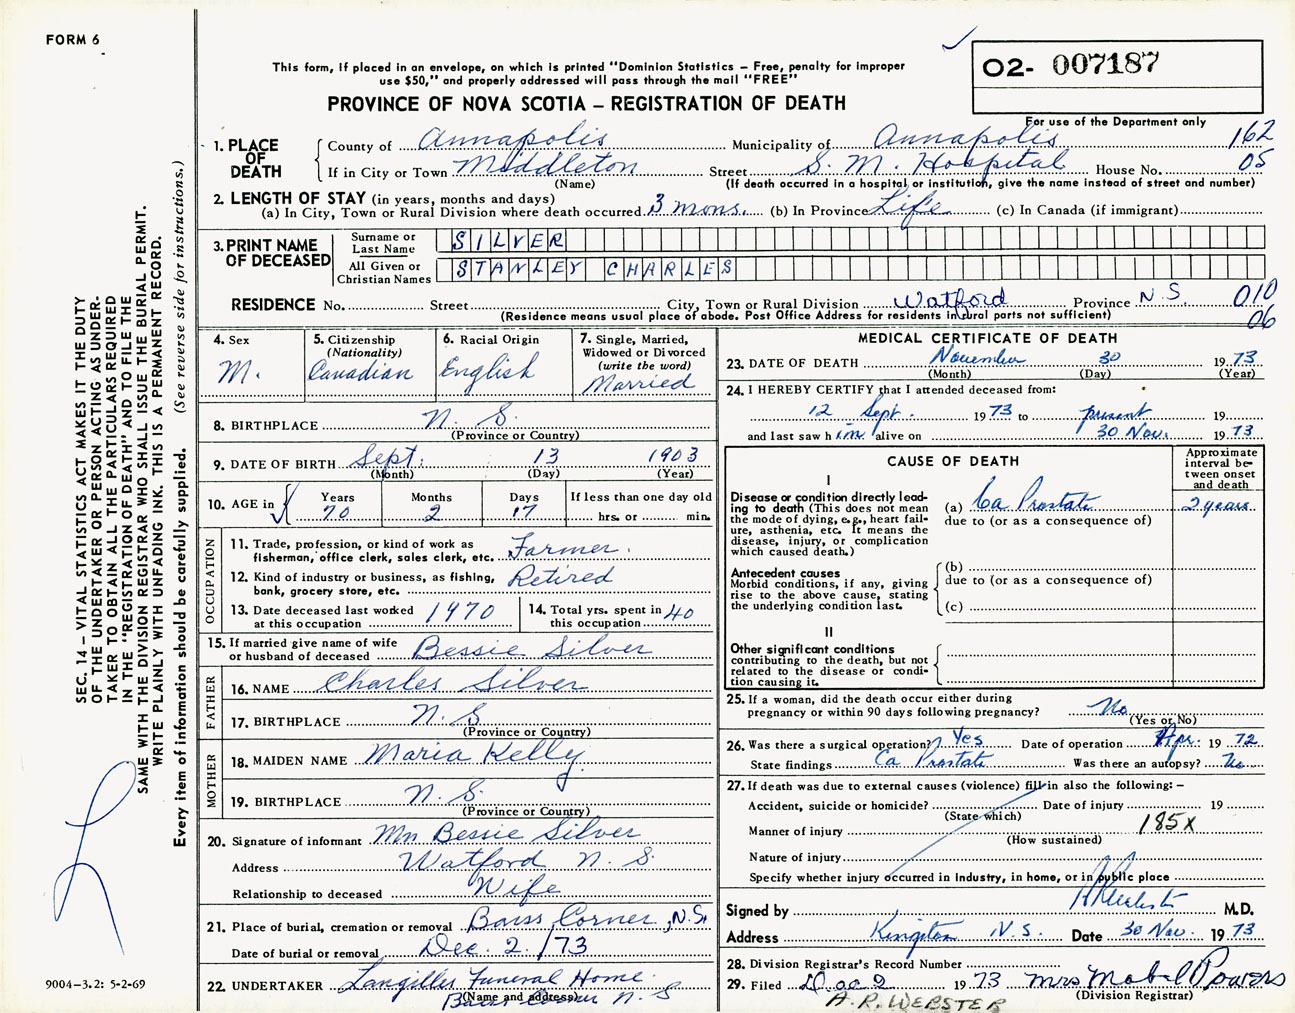 FORM 6
This form, if placed in an envelope, on which is printed "Dominion Statistics – Free, penalty for improper
use $50," and properly addressed will pass through the mail "FREE"
PROVINCE OF NOVA SCOTIA – REGISTRATION OF DEATH
O2- 007187
For use of the Department only
162
05
1. PLACE OF DEATH
County of Annapolis Municipality of Annapolis
If in City or Town Middleton Street S. M. Hospital House No.
(Name) (If death occurred in a hospital or institution, give the name instead of street and number)
2. LENGTH OF STAY (in years, months and days)
(a) In City, Town or Rural Division where death occurred 3 mons. (b) In Province Life (c) In Canada (if immigrant)
3. PRINT NAME OF DECEASED
Surname or Last Name SILVER
All Given or Christian Names STANLEY CHARLES
RESIDENCE No. Street City, Town or Rural Division Watford Province N.S. 010
(Residence means usual place of abode. Post Office Address for residents in rural parts not sufficient) 06
4. Sex M.
5. Citizenship (Nationality) Canadian
6. Racial Origin English
7. Single, Married, Widowed or Divorced (write the word) Married
8. BIRTHPLACE N. S.
(Province or Country)
9. DATE OF BIRTH Sept. 13 1903
(Month) (Day) (Year)
10. AGE in Years 70 Months 2 Days 17 If less than one day old
hrs. or min.
OCCUPATION
11. Trade, profession, or kind of work as fisherman, office clerk, sales clerk, etc. Farmer.
12. Kind of industry or business, as fishing, bank, grocery store, etc. Retired
13. Date deceased last worked at this occupation 1970
14. Total yrs. spent in this occupation 40
15. If married give name of wife or husband of deceased Bessie Silver
FATHER
16. NAME Charles Silver
17. BIRTHPLACE N. S
(Province or Country)
MOTHER
18. MAIDEN NAME Maria Kelly
19. BIRTHPLACE N. S.
(Province or Country)
20. Signature of informant Mrs Bessie Silver
Address Watford N. S.
Relationship to deceased Wife
21. Place of burial, cremation or removal Barss Corner, N.S.
Date of burial or removal Dec. 2/73
22. UNDERTAKER Langilles Funeral Home
(Name and address) Barss Corner N. S
MEDICAL CERTIFICATE OF DEATH
23. DATE OF DEATH November 30 1973
(Month) (Day) (Year)
24. I HEREBY CERTIFY that I attended deceased from:
12 Sept. 1973 to present 19
and last saw him alive on 30 Nov. 1973
CAUSE OF DEATH
Approximate interval between onset and death
I
Disease or condition directly leading to death (This does not mean the mode of dying, e.g., heart failure, asthenia, etc. It means the disease, injury, or complication which caused death.)
(a) Ca Prostate 2 years
due to (or as a consequence of)
Antecedent causes
Morbid conditions, if any, giving rise to the above cause, stating the underlying condition last.
(b)
due to (or as a consequence of)
(c)
II
Other significant conditions
contributing to the death, but not related to the disease or condition causing it.
25. If a woman, did the death occur either during pregnancy or within 90 days following pregnancy? No
(Yes or No)
26. Was there a surgical operation? Yes Date of operation Apr. 1972
State findings Ca Prostate Was there an autopsy? No
27. If death was due to external causes (violence) fill in also the following: –
Accident, suicide or homicide? Date of injury 19
(State which)
Manner of injury 185X
(How sustained)
Nature of injury
Specify whether injury occurred in Industry, in home, or in public place
Signed by M.D.
Address Kingston N.S. Date 30 Nov. 1973
28. Division Registrar's Record Number
29. Filed Dec 2 1973 Mrs Mabel Powers
(Division Registrar)
A. R. WEBSTER
SEC. 14 – VITAL STATISTICS ACT MAKES IT THE DUTY
OF THE UNDERTAKER OR PERSON ACTING AS UNDER-
TAKER TO OBTAIN ALL THE PARTICULARS REQUIRED
IN THE "REGISTRATION OF DEATH" AND TO FILE THE
SAME WITH THE DIVISION REGISTRAR WHO SHALL ISSUE THE BURIAL PERMIT.
WRITE PLAINLY WITH UNFADING INK. THIS IS A PERMANENT RECORD.
Every item of information should be carefully supplied. (See reverse side for instructions.)
9004-3.2: 5-2-69